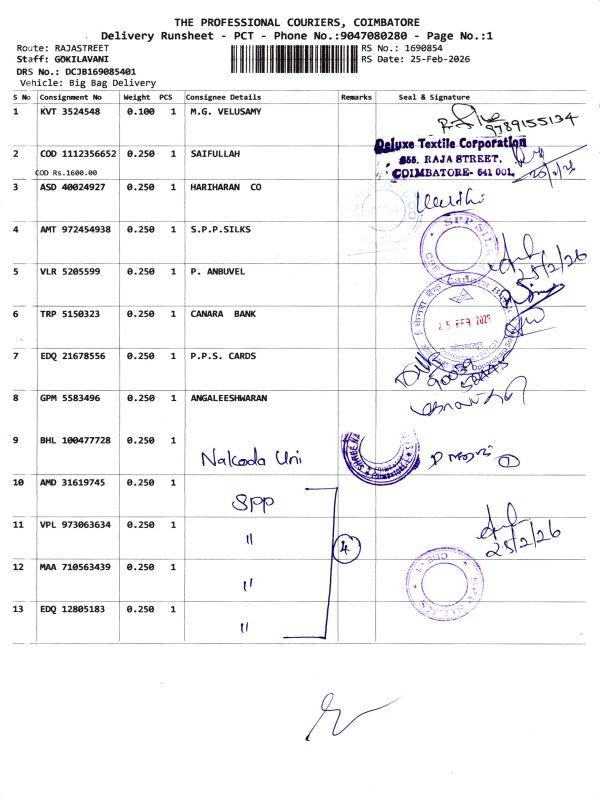 THE PROFESSIONAL COURIERS, COIMBATORE
Delivery Runsheet - PCT - Phone No.:9047080280 - Page No.:1
Route: RAJASTREET
RS No.: 1690854
Staff: GOKILAVANI
RS Date: 25-Feb-2026
DRS No.: DCJB169085401
Vehicle: Big Bag Delivery
S No Consignment No Weight PCS Consignee Details Remarks Seal & Signature
1 KVT 3524548 0.100 1 M.G. VELUSAMY
9789155134
2 COD 1112356652 0.250 1 SAIFULLAH
COD Rs.1600.00
Deluxe Textile Corporation
RAJA STREET,
COIMBATORE- 641 001,
3 ASD 40024927 0.250 1 HARIHARAN CO
4 AMT 972454938 0.250 1 S.P.P.SILKS
25/2/26
5 VLR 5205599 0.250 1 P. ANBUVEL
6 TRP 5150323 0.250 1 CANARA BANK
25 FEB 2026
7 EDQ 21678556 0.250 1 P.P.S. CARDS
8 GPM 5583496 0.250 1 ANGALEESHWARAN
9 BHL 100477728 0.250 1
Nalkoda Uni
10 AMD 31619745 0.250 1
SPP
11 VPL 973063634 0.250 1 "
4
25/2/26
12 MAA 710563439 0.250 1 "
13 EDQ 12805183 0.250 1 "